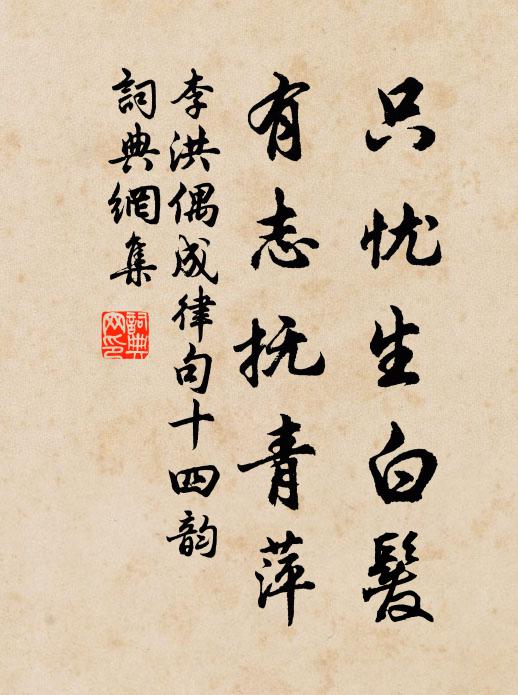 只忧生白髮
有志抚青萍
李洪偶成律句十四韵
詞典網集
詞典网印